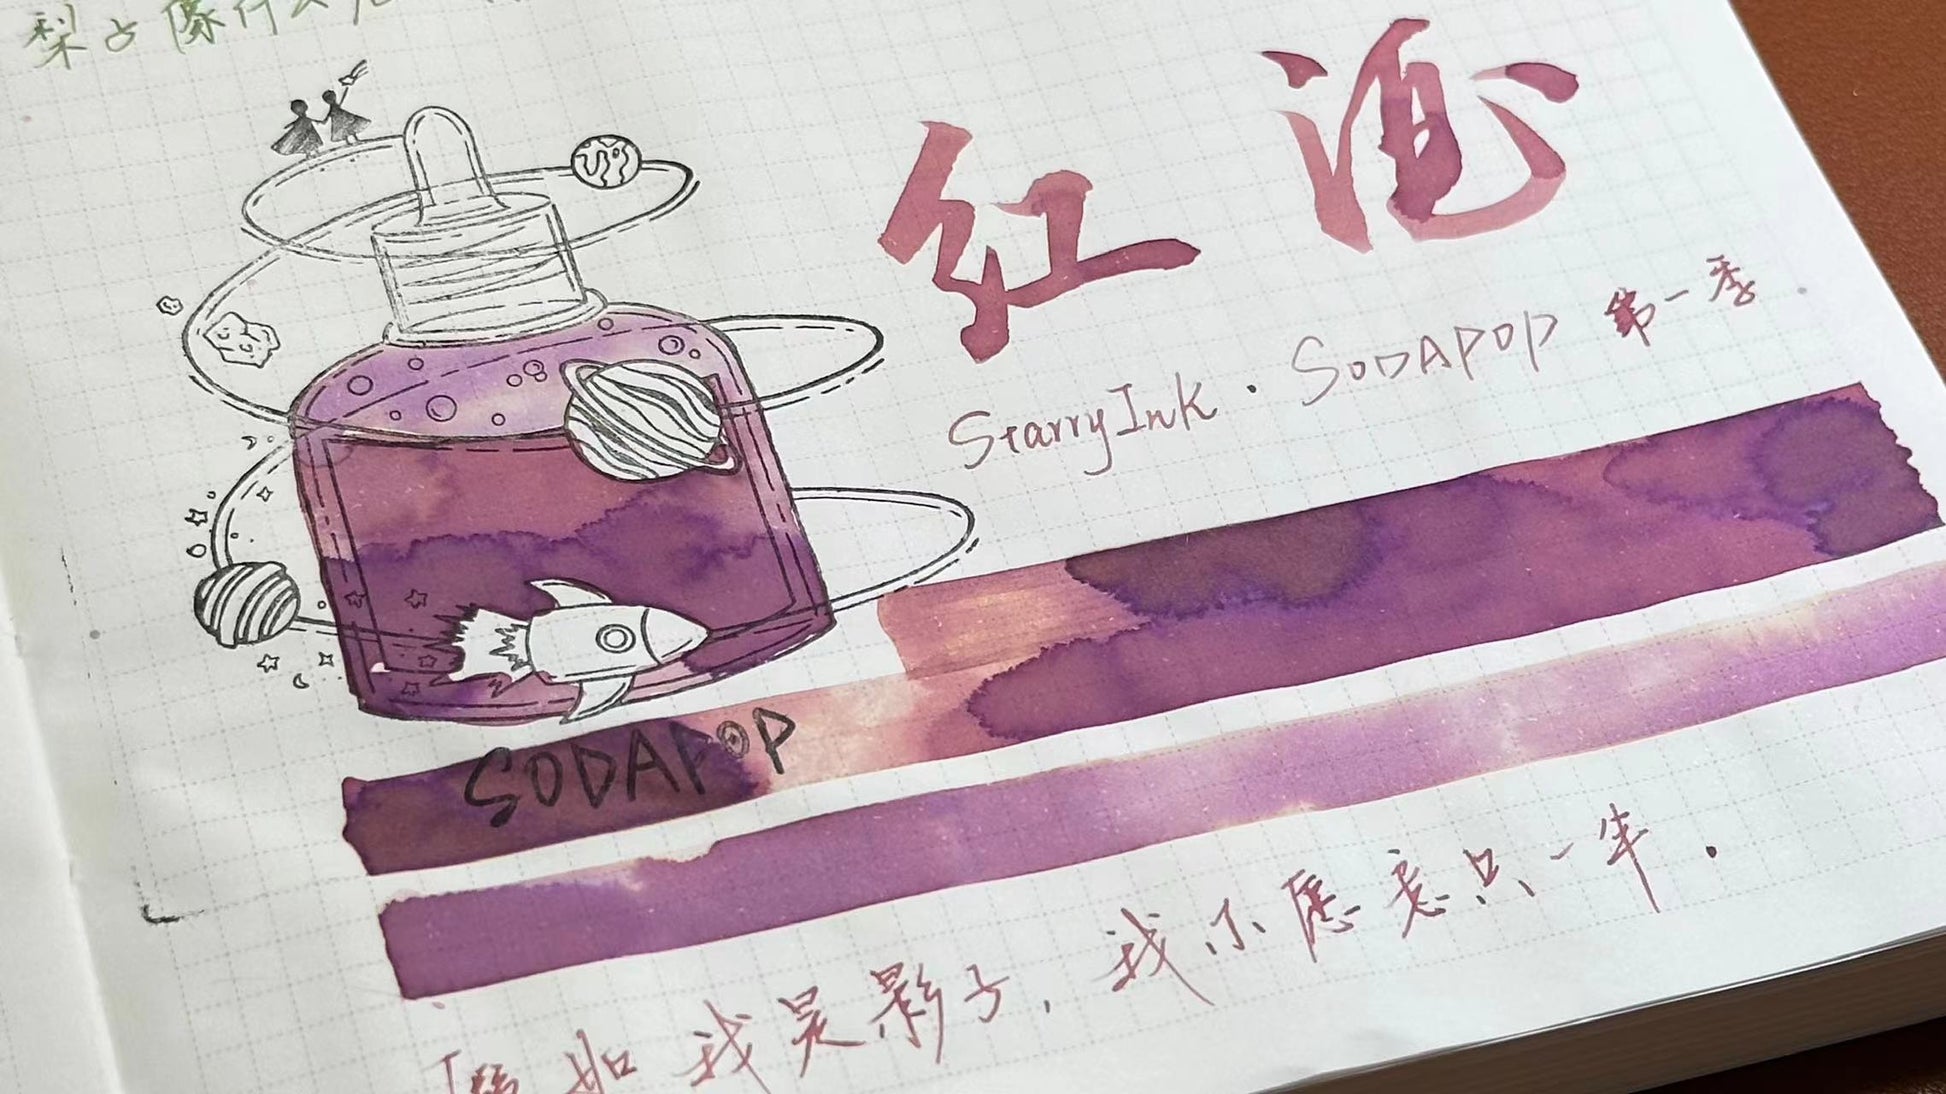 梨子像什么
红酒
StarryInk · SODAPOP 第一季
SODAPOP
假如我是影子，我不愿意只一半．